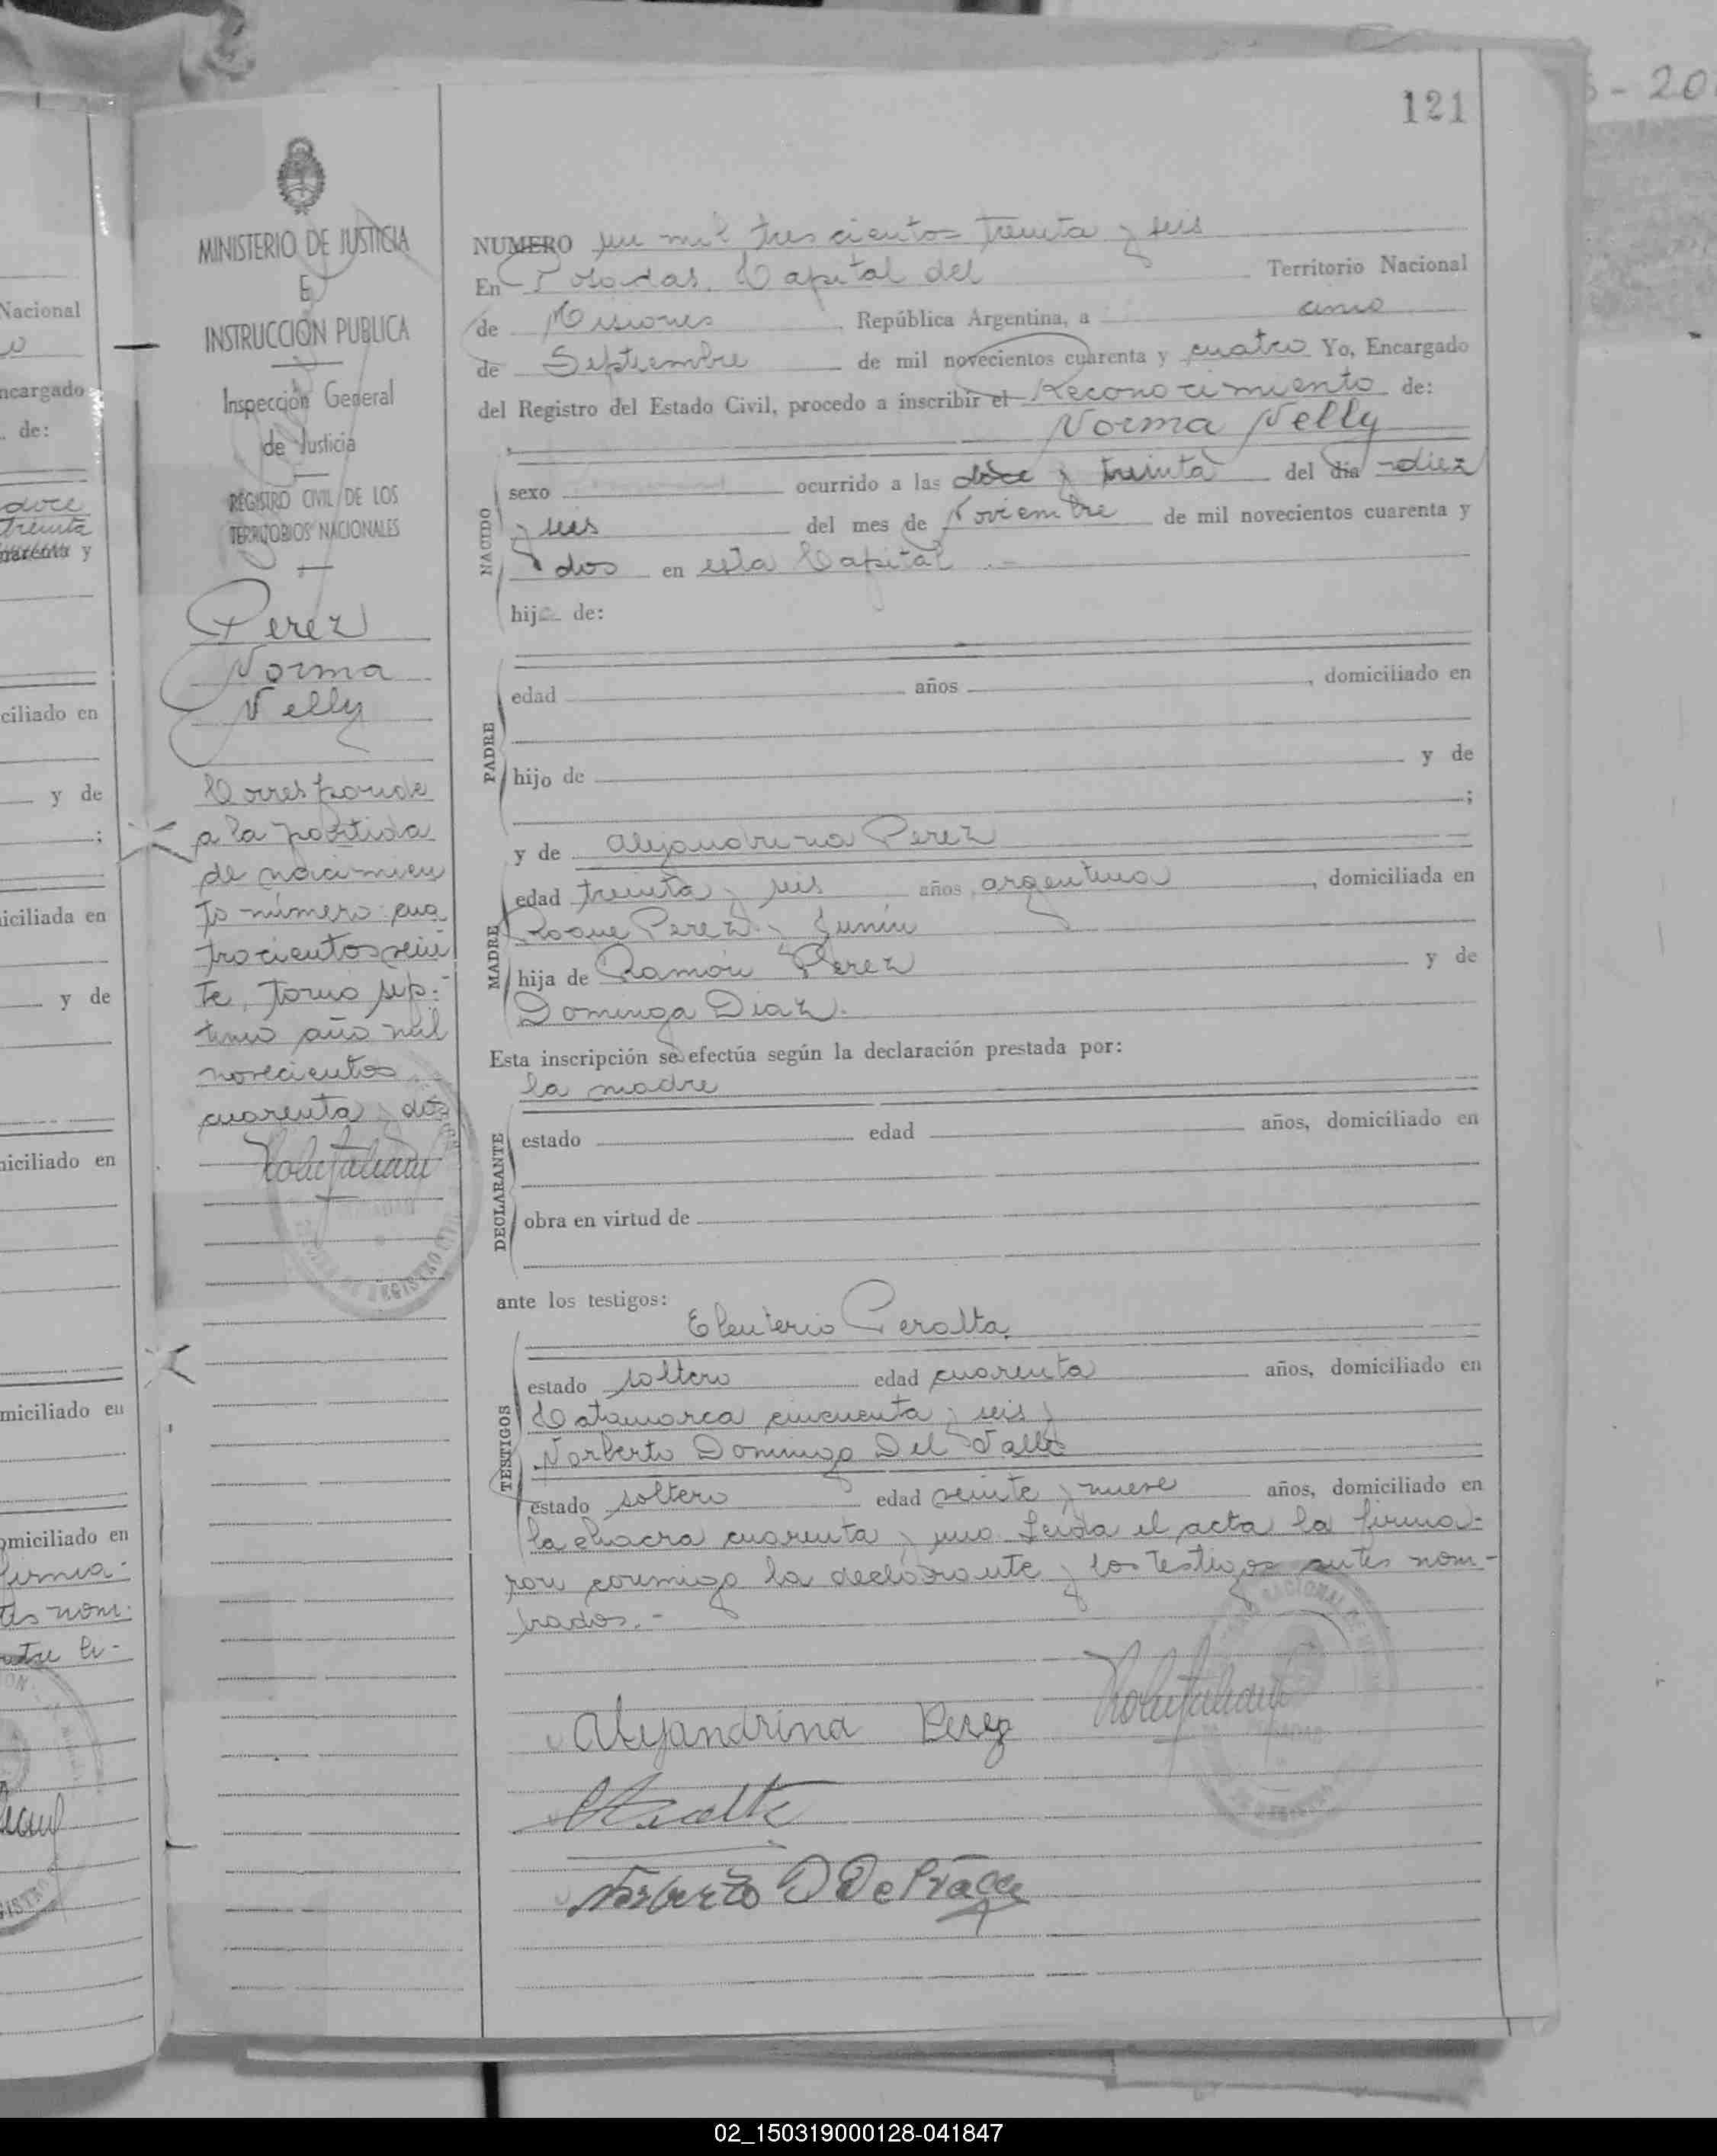 121
6 - 20
MINISTERIO DE JUSTICIA
E
INSTRUCCION PUBLICA
Inspección General
de Justicia
REGISTRO CIVIL DE LOS
TERRITORIOS NACIONALES
Perez
Norma
Nelly
Corresponde
a la partida
de nacimien
to número cua
trocientos vein
te, tomo sép-
timo año mil
novecientos
cuarenta y dos
NUMERO un mil trescientos treinta y seis
En Posadas, Capital del Territorio Nacional
de Misiones República Argentina, a
de Septiembre de mil novecientos cuarenta y cuatro Yo, Encargado
del Registro del Estado Civil, procedo a inscribir el Reconocimiento de:
Norma Nelly
NACIDO
sexo ocurrido a las doce y treinta del dia diez
y seis del mes de Noviembre de mil novecientos cuarenta y
dos en esta Capital .-
hija de:
PADRE
edad años , domiciliado en
hijo de y de
;
y de Alejandrina Perez
MADRE
edad treinta y seis años, argentina , domiciliada en
Roque Perez y Junín
hija de Ramón Perez y de
Dominga Diaz.
Esta inscripción se efectúa según la declaración prestada por:
la madre
DECLARANTE
estado edad años, domiciliado en
obra en virtud de
ante los testigos:
Eleuterio Peralta,
TESTIGOS
estado soltero edad cuarenta años, domiciliado en
Catamarca cincuenta y seis y
Norberto Domingo Del Valle
estado soltero edad veinte y nueve años, domiciliado en
la chacra cuarenta y uno. Leida el acta la firma-
ron conmigo la declarante y los testigos antes nom-
brados.-
Alejandrina Perez
Norberto D De
02_150319000128-041847